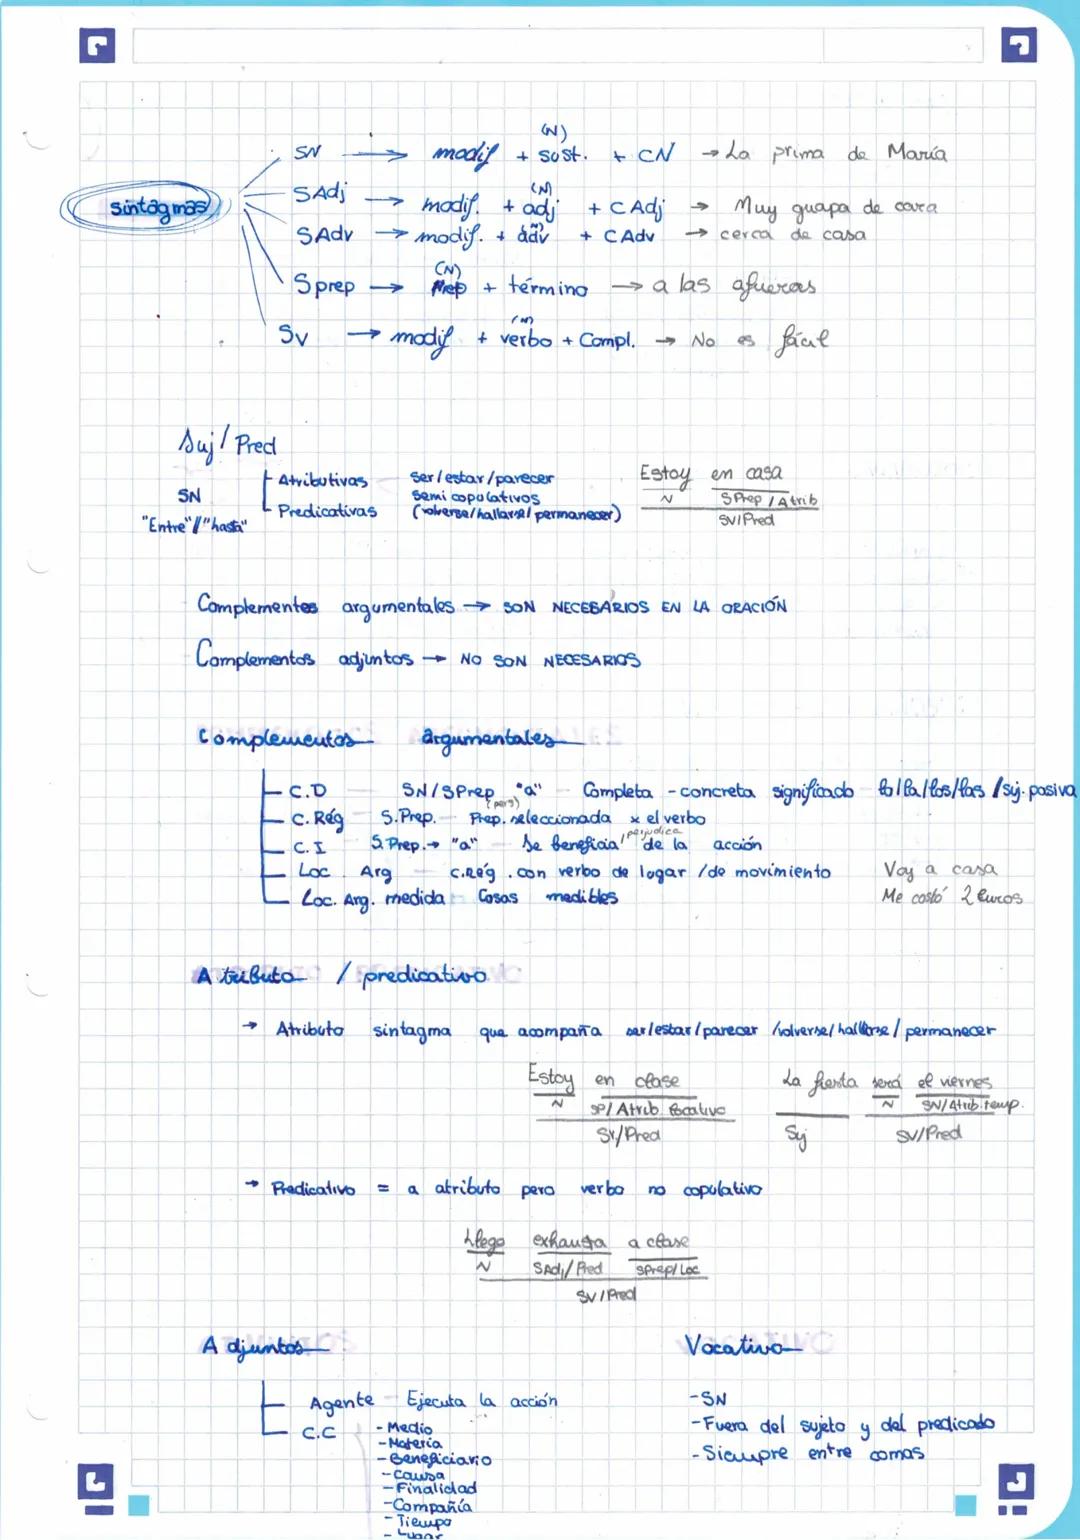 (N)
SN → modif + sust. + CN → La prima de María
(N)
SAdj → modif. + adj + CAdj → Muy guapa de cara
sintagmas
(N)
SAdv → modif. + adv + CAdv → cerca de casa
(N)
Sprep → Prep + término → a las afueras
(N)
SV → modif + verbo + Compl. → No es fácil
Suj / Pred
Atributivas ser/estar/parecer
SN semi copulativos
Predicativas (volverse/hallarse/permanecer)
"Entre"/"hasta"
Estoy en casa
N SPrep / Atrib
SV/Pred
Complementos argumentales → SON NECESARIOS EN LA ORACIÓN
Complementos adjuntos → NO SON NECESARIOS
Complementos argumentales
- C.D SN/SPrep "a" (pers) - Completa - concreta significado lo/la/los/las /Suj. pasiva
- C. Rég S.Prep. - Prep. seleccionada x el verbo
- C.I S.Prep. → "a" - Se beneficia/perjudica de la acción
- Loc. Arg - C.Rég. con verbo de lugar /de movimiento Voy a casa
- Loc. Arg. medida - Cosas medibles Me costó 2 Euros
Atributo / predicativo
→ Atributo sintagma que acompaña ser/estar/parecer /volverse/hallarse/ permanecer
Estoy en clase La fiesta será el viernes
N SP/ Atrib. locativo N SN/Atrib. temp.
SV/Pred Suj SV/Pred
→ Predicativo = a atributo pero verbo no copulativo
Llego exhausta a clase
N SAdj/Pred SPrep/Loc
SV/Pred
Adjuntos Vocativo
Agente - Ejecuta la acción -SN
C.C - Medio -Fuera del sujeto y del predicado
-Materia -Siempre entre comas
-Beneficiario
-Causa
-Finalidad
-Compañía
-Tiempo
-Lugar